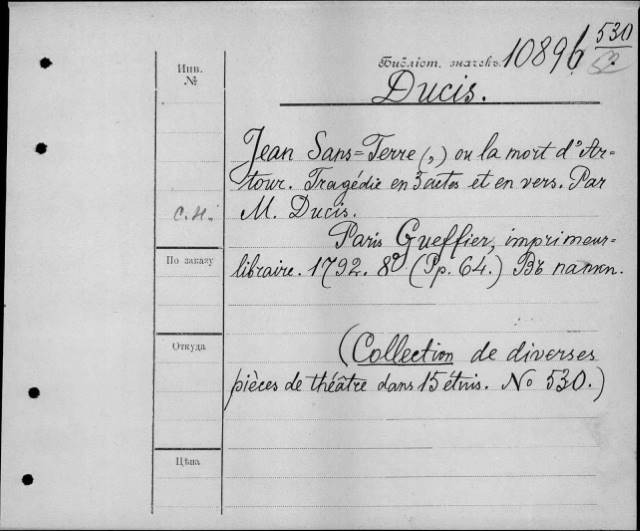 530
Инв.
№
Бібліот. значекъ 10896
52
Ducis.
Jean Sans=Terre (,) ou la mort d'Ar-
tour. Tragédie en 3 actes et en vers. Par
с.н. M. Ducis.
Paris Gueffier, imprimeur=
По заказу
libraire. 1792. 8° (Pp. 64.) Въ папкѣ.
Откуда
(Collection de diverses
pièces de théâtre dans 15 étuis. No 530.)
Цѣна